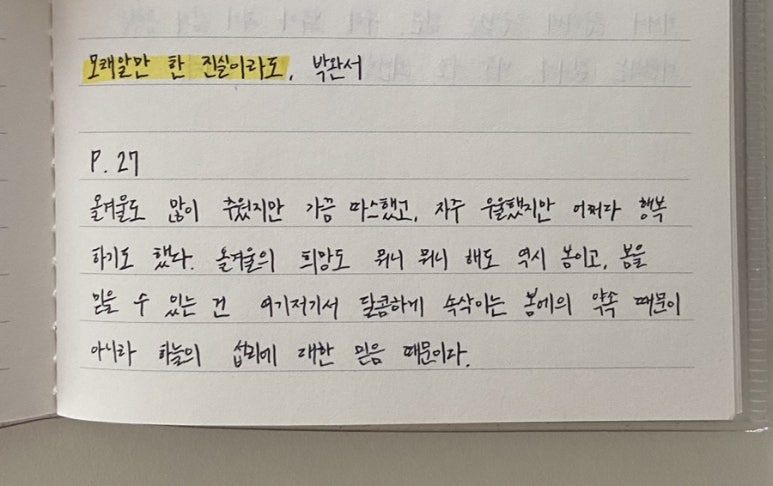 모래알만 한 진실이라도, 박완서
P. 27
올겨울도 많이 추웠지만 가끔 따스했고, 자주 우울했지만 어쩌다 행복
하기도 했다. 올겨울의 희망도 뭐니 뭐니 해도 역시 봄이고, 봄을
믿을 수 있는 건 여기저기서 달콤하게 속삭이는 봄에의 약속 때문이
아니라 하늘의 섭리에 대한 믿음 때문이다.